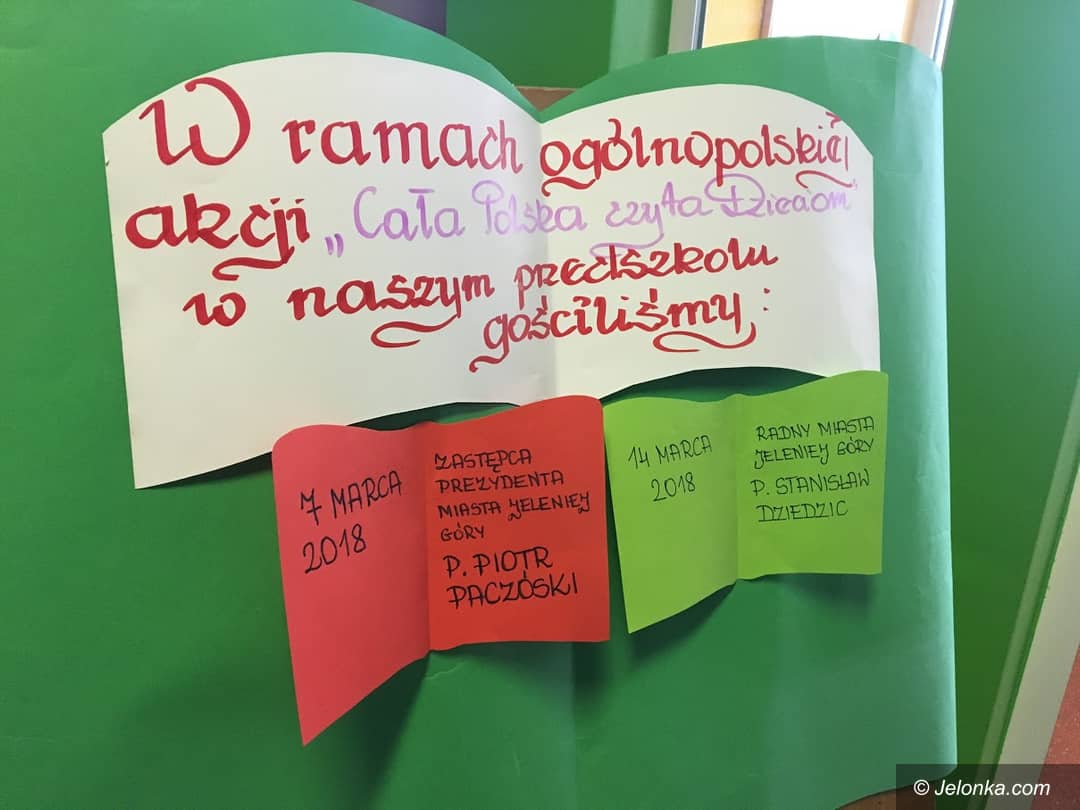 W ramach ogólnopolskiej
akcji „Cała Polska czyta Dzieciom"
w naszym przedszkolu
gościliśmy:
7 MARCA
2018
ZASTĘPCA
PREZYDENTA
MIASTA JELENIEJ
GÓRY
P. PIOTR
PACZÓSKI
14 MARCA
2018
RADNY MIASTA
JELENIEJ GÓRY
P. STANISŁAW
DZIEDZIC
© Jelonka.com